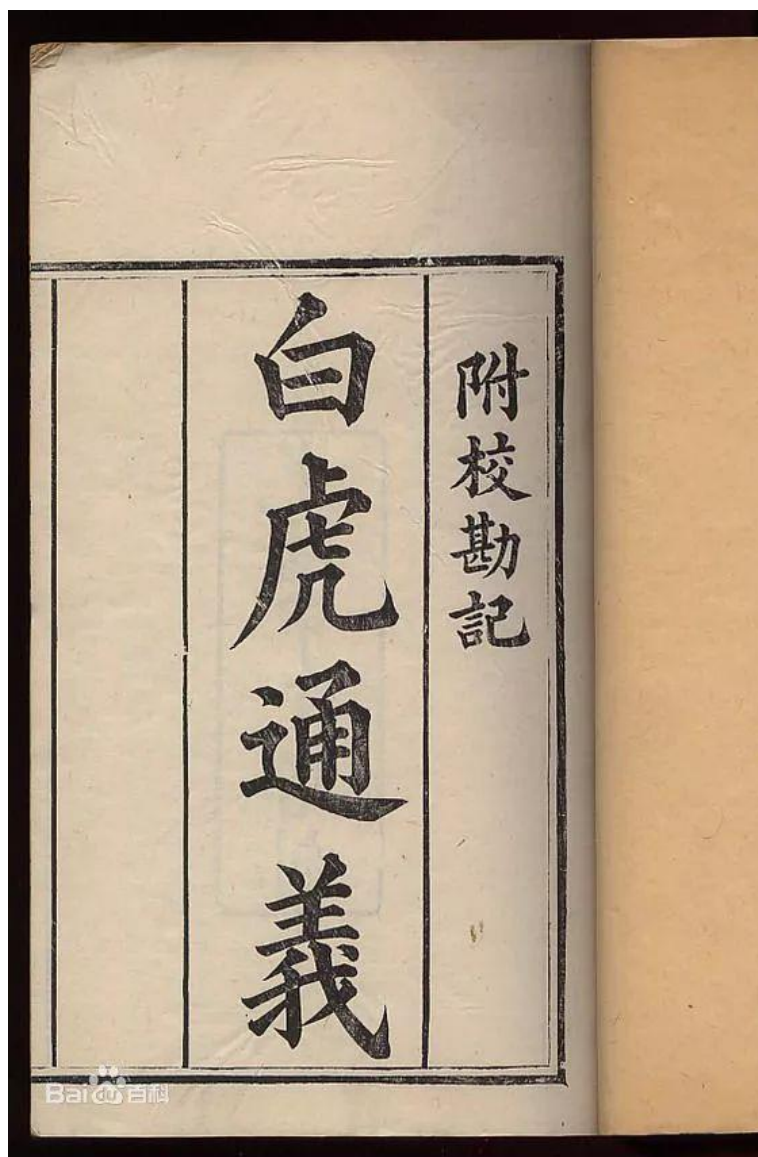 附校勘記
白虎通義
Bai百科